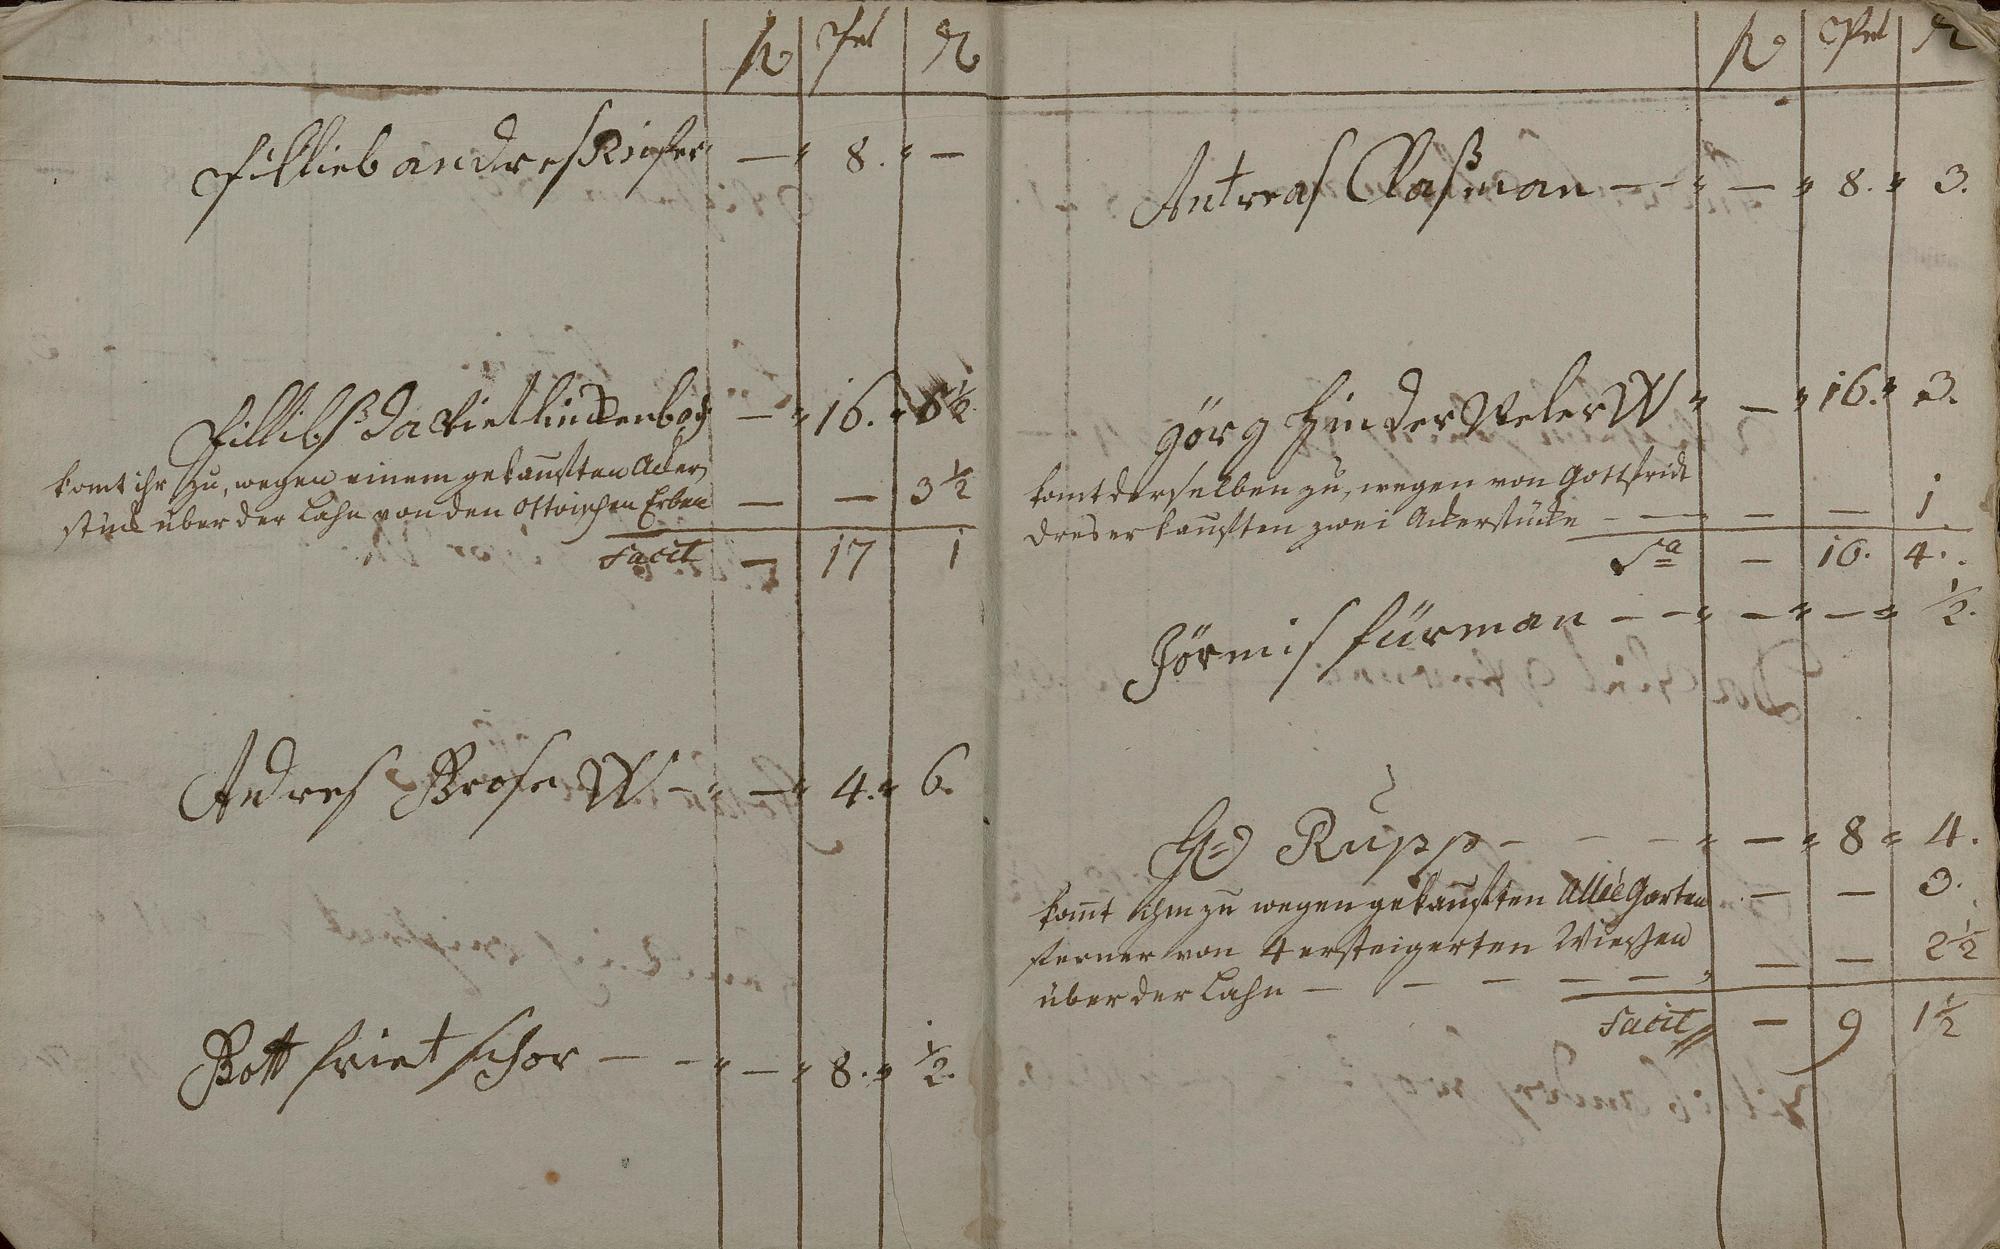 Fillieb andres Kinfer — 8. —
Fillibs Daviet linckenbog — 16. 5½
komt ihr zu, wegen einem gekauften Acker,
stück über der Lahn von den Ottoischen Erben — — 3½
Facit — 17 1
Andres Brose W — — 4. 6.
Gott friet schor — — — 8. ½.
Antreas Claßman — — — 8. 3.
Görg hinder Meler W — 16. 3.
komt derselben zu, wegen von Gottfridt
dreser kauften zwei Ackerstücke — — — — 1
Sa — 16. 4.
Jörmis fürman — — — — ½.
Rupp — — — — 8 4.
komt ihm zu wegen gekauften Allée Garten — — 3.
ferner von 4 ersteigerten Wießen
über der Lahn — — — — — — — 2½
Facit — 9 1½